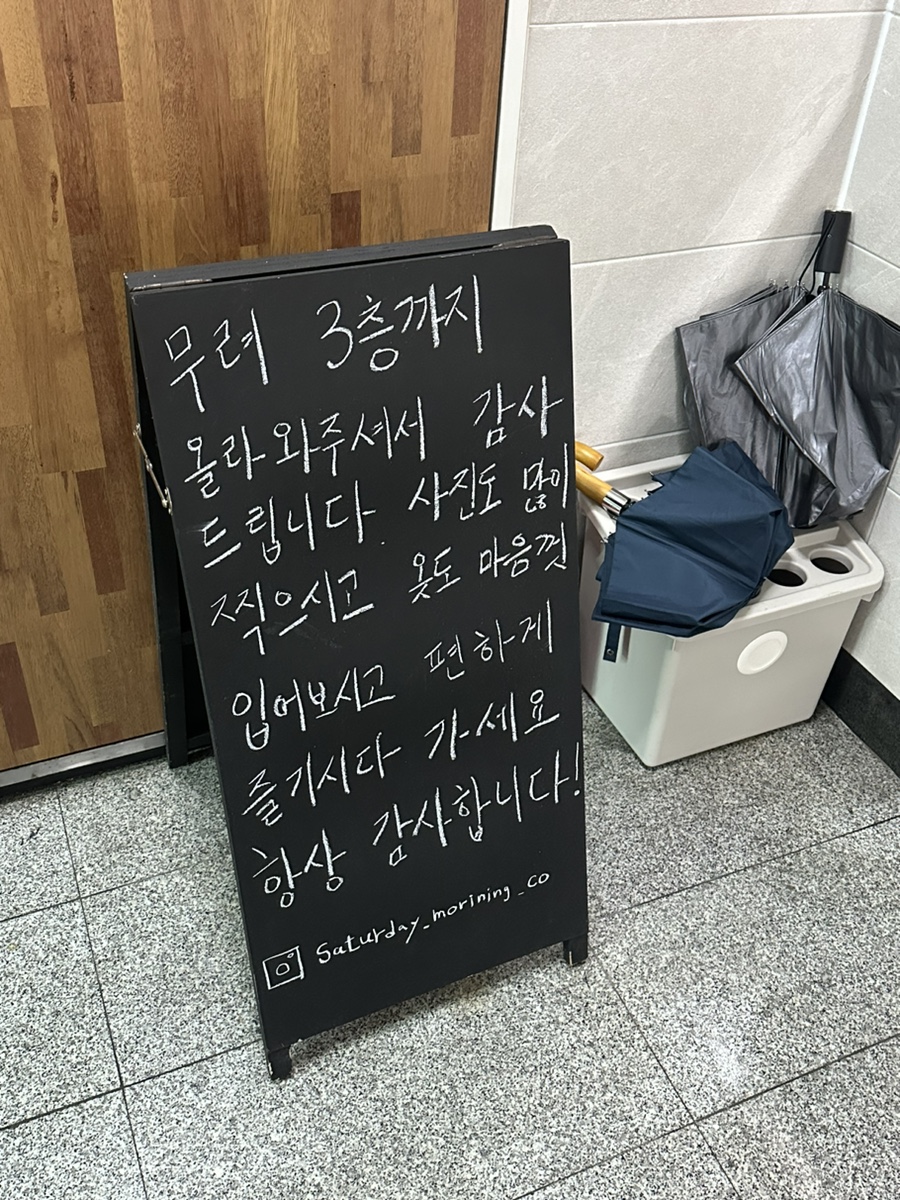 무려 3층까지
올라와주셔서 감사
드립니다. 사진도 많이
찍으시고 옷도 마음껏
입어보시고 편하게
즐기시다 가세요
항상 감사합니다!
Saturday_morining_co